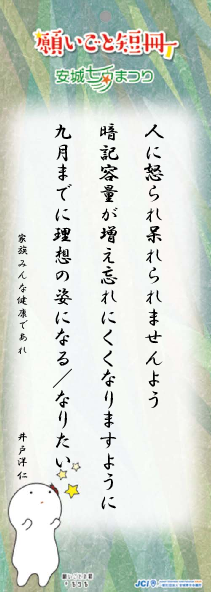 願いごと短冊
安城七夕まつり
人に怒られ呆れられませんよう
暗記容量が増え忘れにくくなりますように
九月までに理想の姿になる/なりたい
家族みんな健康であれ
井戸洋仁
JCI